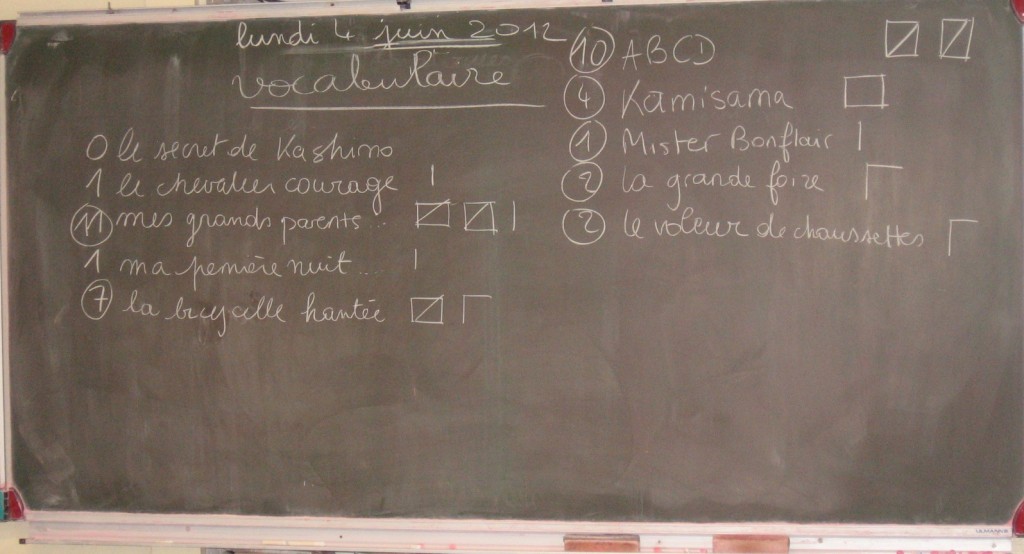 lundi 4 juin 2012
vocabulaire
0 le secret de Kashimo
1 le chevalier courage
11 mes grands parents...
1 ma pemière nuit...
7 la bicyclette hantée
10 ABCD
4 Kamisama
1 Mister Bonflair
2 la grande foire
2 le voleur de chaussettes